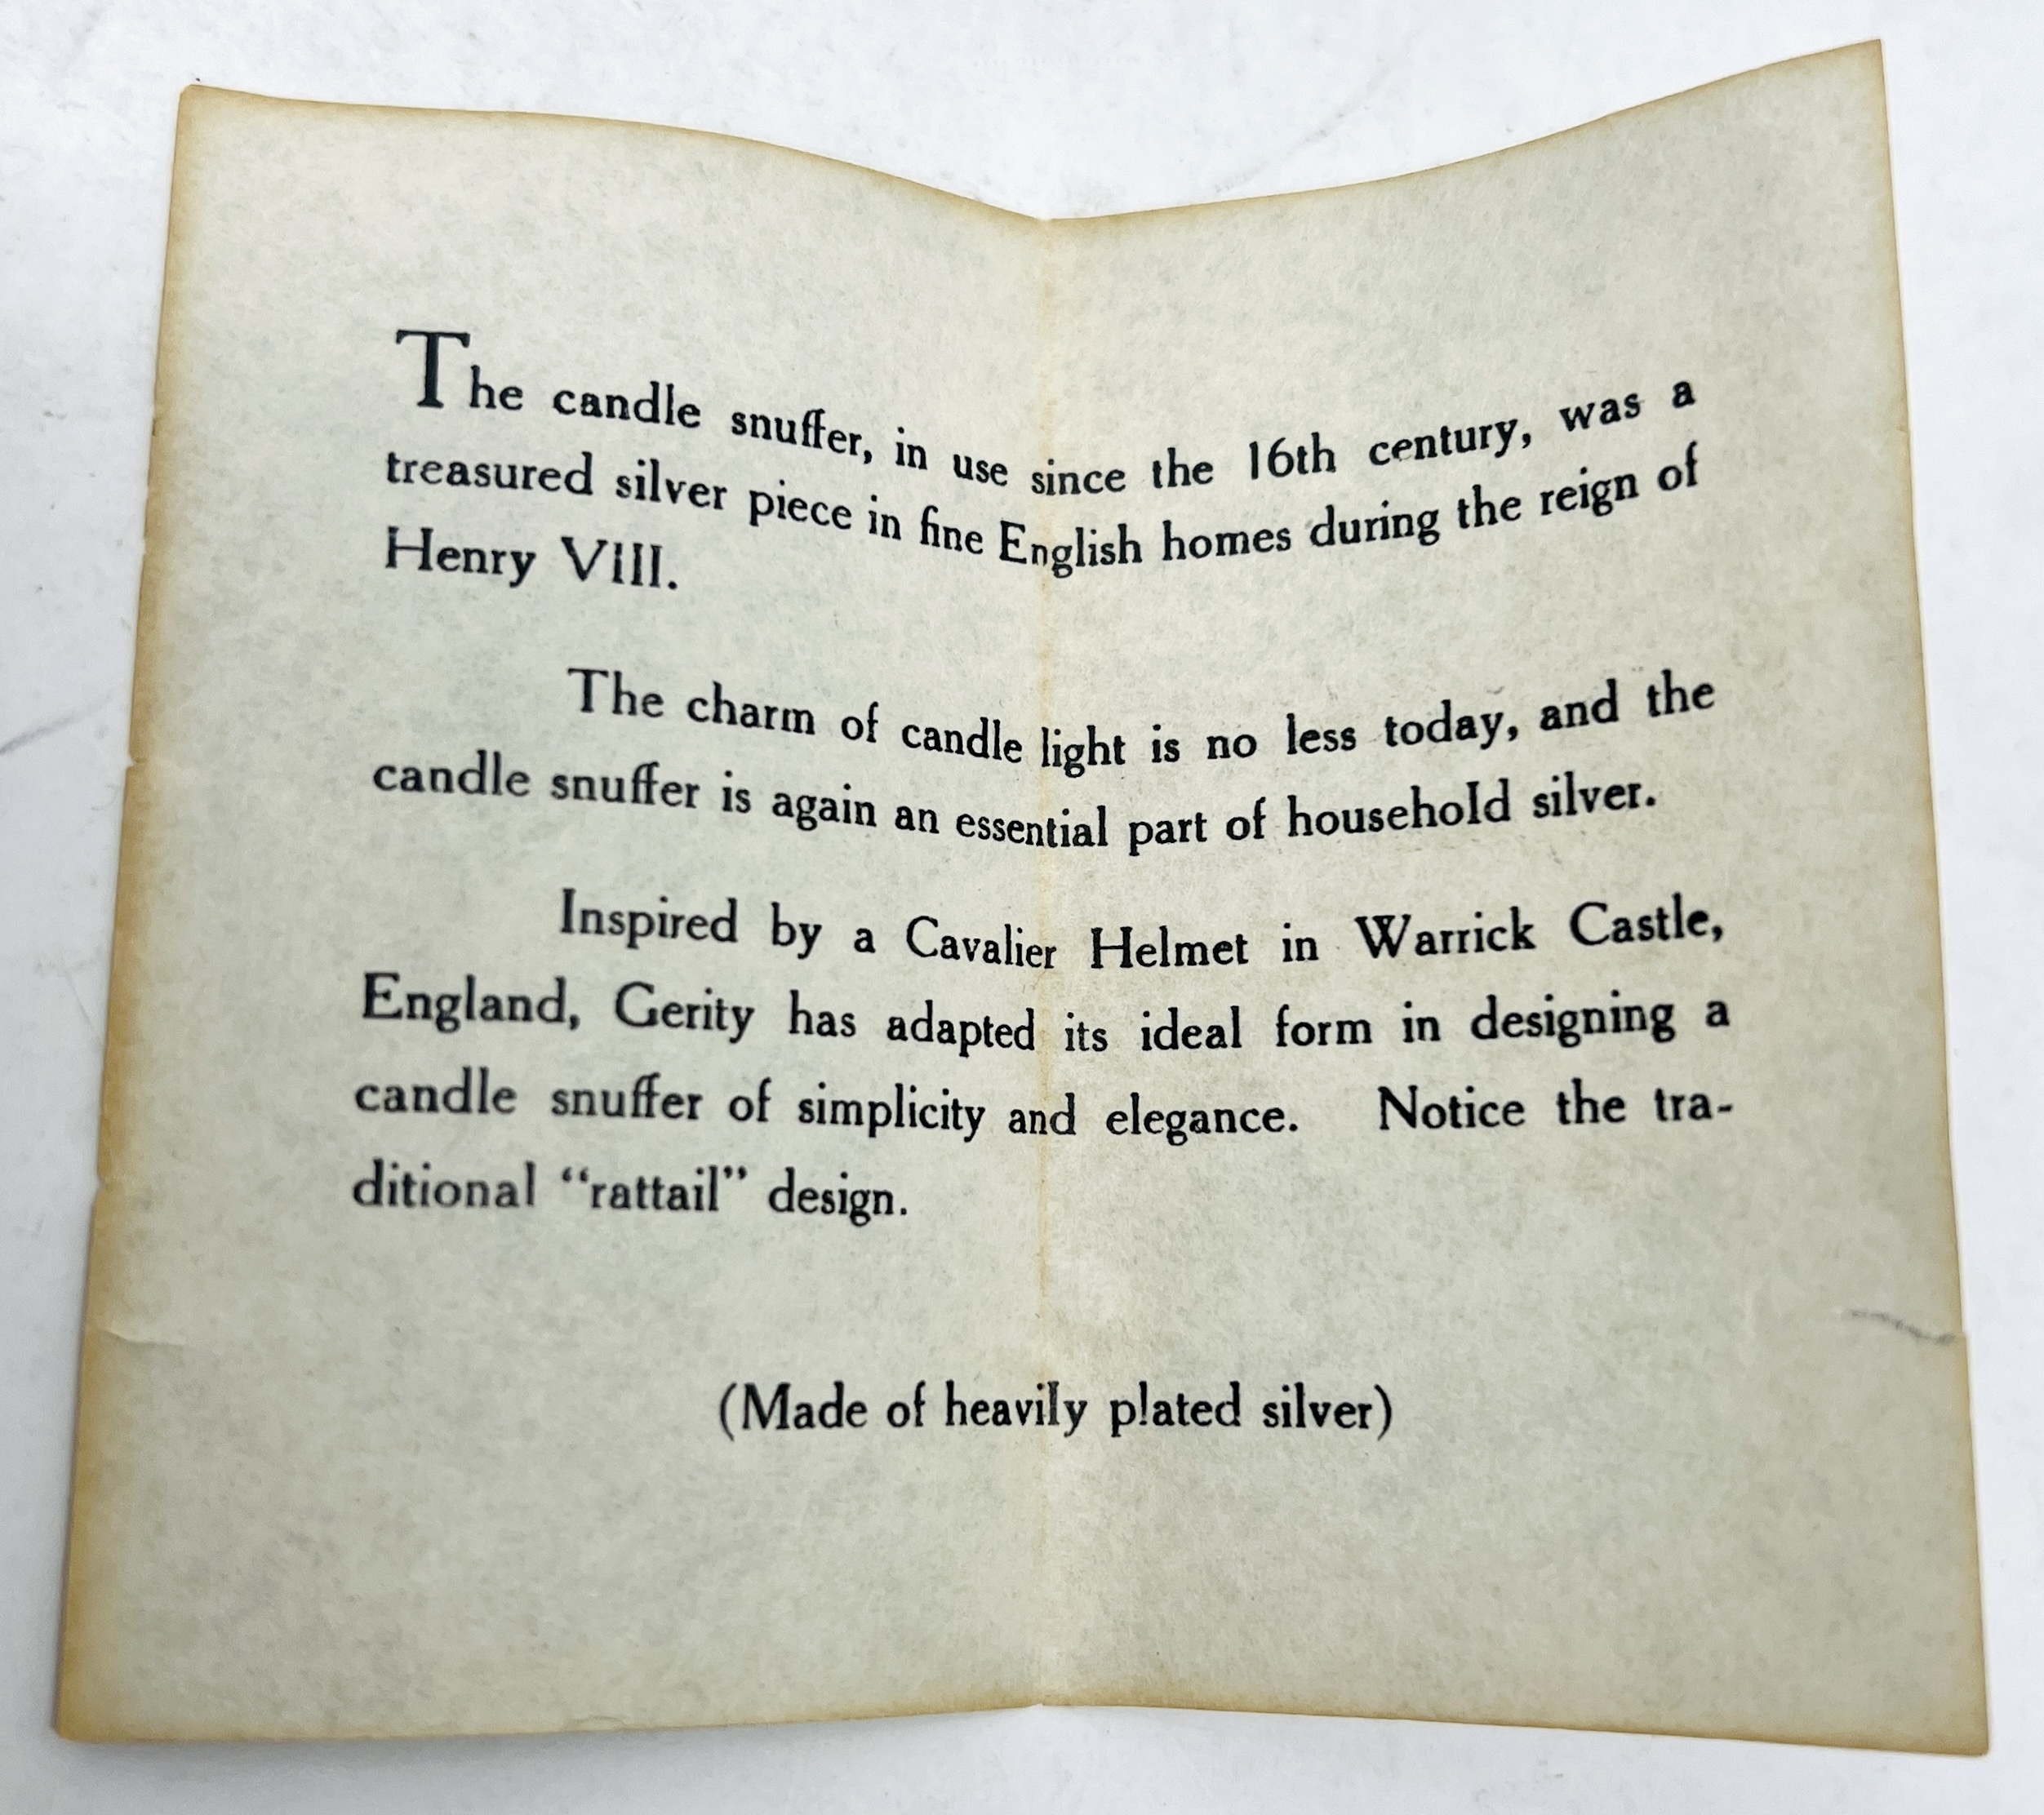 The candle snuffer, in use since the 16th century, was a
treasured silver piece in fine English homes during the reign of
Henry VIII.
The charm of candle light is no less today, and the
candle snuffer is again an essential part of household silver.
Inspired by a Cavalier Helmet in Warrick Castle,
England, Gerity has adapted its ideal form in designing a
candle snuffer of simplicity and elegance. Notice the tra-
ditional “rattail” design.
(Made of heavily plated silver)